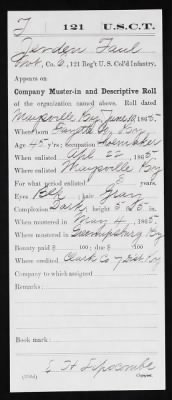 T 121 U.S.C.T.
Jorden Faul
Pvt., Co. C, 121 Reg't U. S. Col'd Infantry.
Appears on
Company Muster-in and Descriptive Roll
of the organization named above. Roll dated
Maysville, Ky, June 10, 1865.
Where born Fayette Co, Ky
Age 45 y'rs; occupation Shoemaker
When enlisted Apl 22, 1865.
Where enlisted Maysville Ky
For what period enlisted years.
Eyes Blk; hair Gray
Complexion Dark; height 5 ft. 5 in.
When mustered in May 4, 1865.
Where mustered in Ky
Bounty paid $ 100; due $ 100
Where credited Clark Co 7 Dist Ky
Company to which assigned
Remarks:
Book mark:
Lipscombe
Copyist.